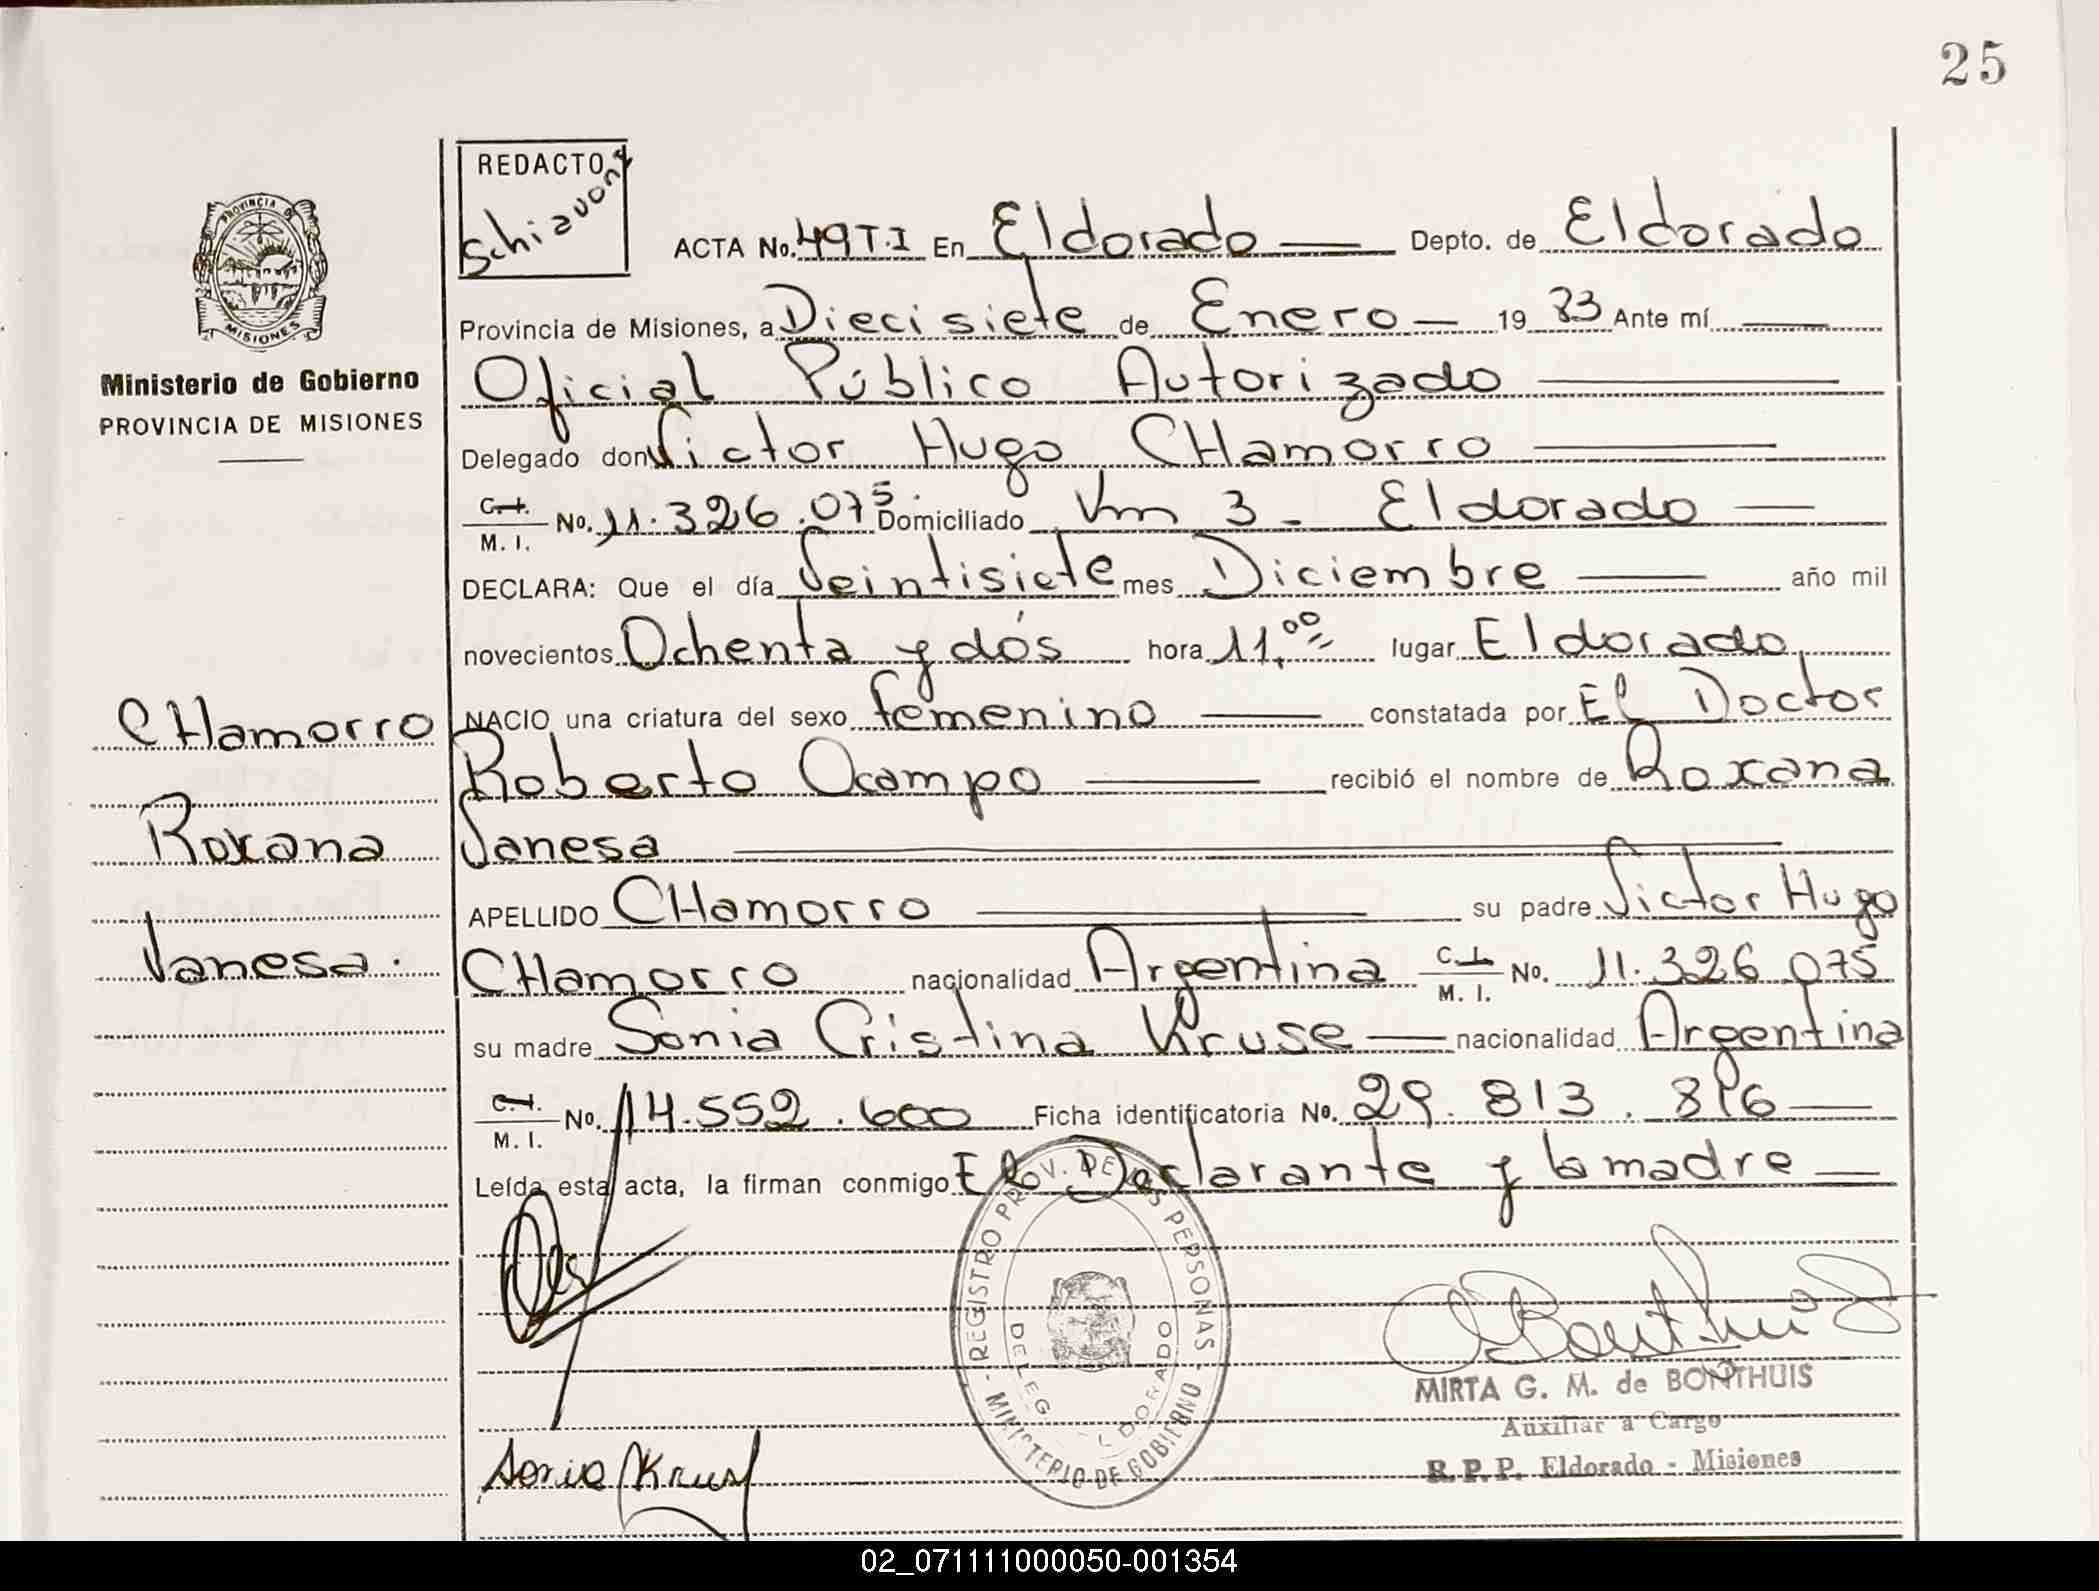 25
REDACTO
Schiavone
PROVINCIA DE
MISIONES
Ministerio de Gobierno
PROVINCIA DE MISIONES
ACTA No. 49 T.I En Eldorado Depto. de Eldorado
Provincia de Misiones, a Diecisiete de Enero 19 83 Ante mí
Oficial Público Autorizado
Delegado don Victor Hugo CHamorro
C.I. M. I. No. 11.326.075 Domiciliado Km 3 - Eldorado
DECLARA: Que el día Veintisiete mes Diciembre año mil
novecientos Ochenta y dós hora 11,00 lugar Eldorado
NACIO una criatura del sexo femenino constatada por El Doctor
Roberto Ocampo recibió el nombre de Roxana
Vanesa
APELLIDO CHamorro su padre Victor Hugo
CHamorro nacionalidad Argentina C.I. M. I. No. 11.326.075
su madre Sonia Cristina Kruse nacionalidad Argentina
C.I. M. I. No. 14.552.600 Ficha identificatoria No. 29.813.816
Leída esta acta, la firman conmigo El Declarante y la madre
CHamorro
Roxana
Vanesa.
REGISTRO PROV. DE LAS PERSONAS
MINISTERIO DE GOBIERNO
DELEG. ELDORADO
MIRTA G. M. de BONTHUIS
Auxiliar a Cargo
R. P. P. Eldorado - Misiones
Sonia Kruse
02_071111000050-001354